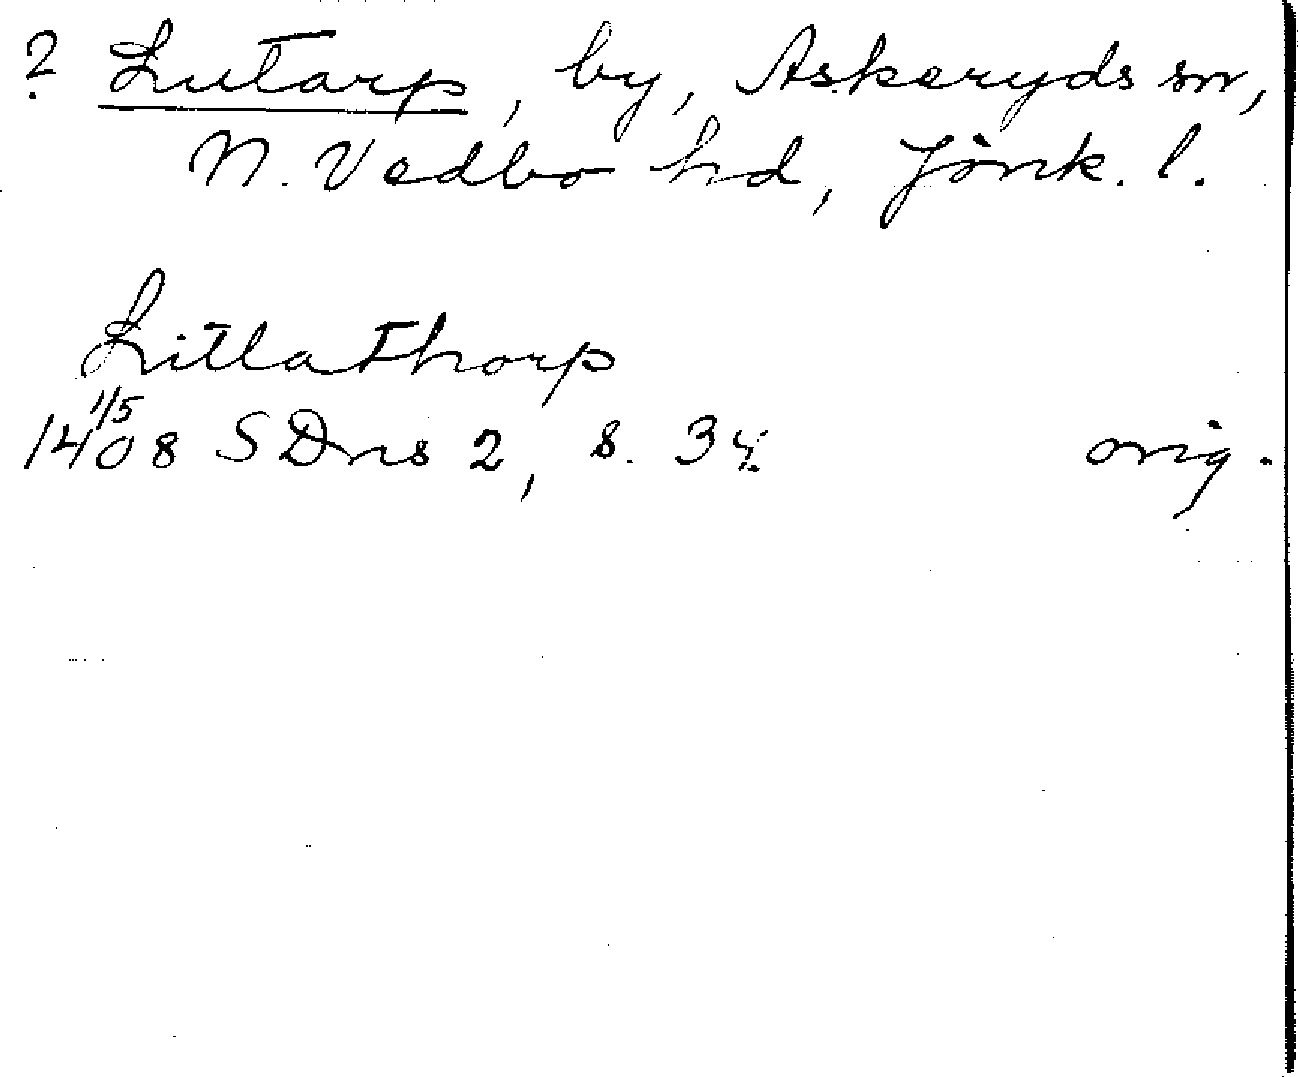 ? Lutarp, by, Askeryds sn,
N. Vedbo hd, Jönk. l.
Litlathorp
1/5
1408 SDns 2, s. 34 orig.